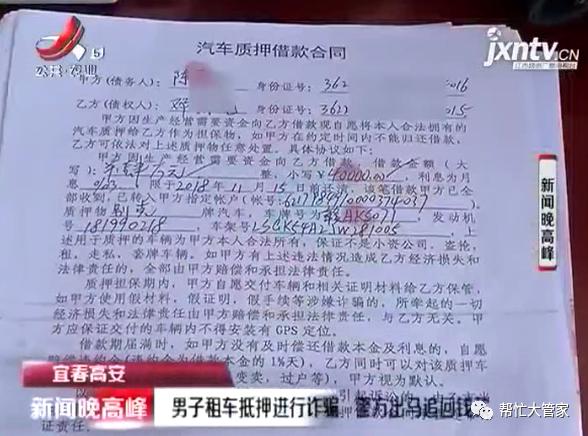 5
公共·农业
jxntv.CN
江西网络广播电视台
汽车质押借款合同
甲方(债务人): 陈
身份证号: 362
2016
乙方(债权人):
身份证号: 362
2015
甲方因生产经营需要资金向乙方借款现自愿将本人合法拥有的
汽车质押给乙方作为担保物,如甲方在约定时间内不能归还借款,
乙方可依法对上述质押物任意处置。具体协议如下:
甲方因生产经营需要资金向乙方借款,借款金额(大
写): 万元 整,小写¥40000.00 利息为月
息 限于2018年11月15日前还清,该笔借款甲方已全
部收到,已转入甲方指定帐户(帐号:
质押物 别克 牌汽车,车牌号为 发动机
号181990218,车架号 上
述用于质押的车辆为甲方本人合法所有,保证不是小资公司、盗抢、
租、走私、套牌车辆。如甲方有上述违法情况造成乙方经济损失和
法律责任的,全部由甲方赔偿和承担法律责任。
质押担保期内,甲方自愿交付车辆和相关证明材料给乙方保管,
如甲方使用假材料,假证明,假手续等涉嫌诈骗的,所牵起的一切
经济损失和法律责任由甲方赔偿和承担法律责任,与乙方无关。甲方
应保证交付的车辆内不得安装有 GPS 定位。
借款期届满时,如甲方没有及时偿还借款本金及利息的,自愿
赔偿违约金(违约金为借款本金的1%天),乙方同时可以对该质押车
变卖,过户等),甲方视为默认。
证责任。
新闻晚高峰
宜春高安
新闻晚高峰
男子租车抵押进行诈骗 警方出马追回
帮忙大管家